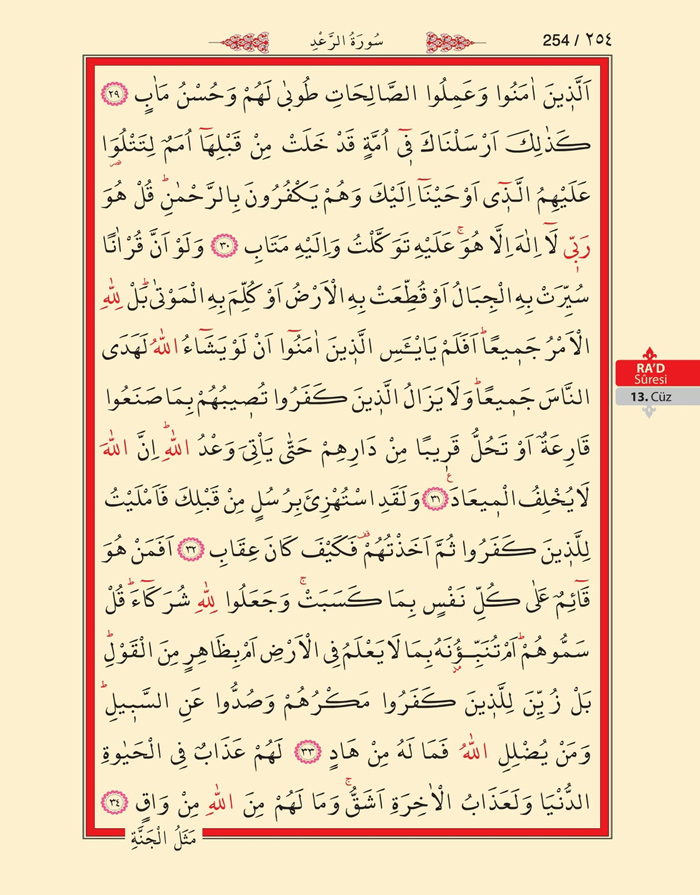 254 / ٢٥٤
سُورَةُ الرَّعْدِ
اَلَّذ۪ينَ اٰمَنُوا وَعَمِلُوا الصَّالِحَاتِ طُوبٰى لَهُمْ وَحُسْنُ مَاٰبٍ ﴿٢٩﴾
كَذٰلِكَ اَرْسَلْنَاكَ ف۪ٓي اُمَّةٍ قَدْ خَلَتْ مِنْ قَبْلِهَٓا اُمَمٌ لِتَتْلُوَ۬ا
عَلَيْهِمُ الَّذ۪ٓي اَوْحَيْنَٓا اِلَيْكَ وَهُمْ يَكْفُرُونَ بِالرَّحْمٰنِۜ قُلْ هُوَ
رَبّ۪ي لَٓا اِلٰهَ اِلَّا هُوَۚ عَلَيْهِ تَوَكَّلْتُ وَاِلَيْهِ مَتَابِ ﴿٣٠﴾ وَلَوْ اَنَّ قُرْاٰنًا
سُيِّرَتْ بِهِ الْجِبَالُ اَوْ قُطِّعَتْ بِهِ الْاَرْضُ اَوْ كُلِّمَ بِهِ الْمَوْتٰىۜ بَلْ لِلّٰهِ
الْاَمْرُ جَم۪يعًاۜ اَفَلَمْ يَايْـَٔسِ الَّذ۪ينَ اٰمَنُٓوا اَنْ لَوْ يَشَٓاءُ اللّٰهُ لَهَدَى
النَّاسَ جَم۪يعًاۜ وَلَا يَزَالُ الَّذ۪ينَ كَفَرُوا تُص۪يبُهُمْ بِمَا صَنَعُوا
قَارِعَةٌ اَوْ تَحُلُّ قَر۪يبًا مِنْ دَارِهِمْ حَتّٰى يَأْتِيَ وَعْدُ اللّٰهِۜ اِنَّ اللّٰهَ
لَا يُخْلِفُ الْم۪يعَادَ۟ ﴿٣١﴾ وَلَقَدِ اسْتُهْزِئَ بِرُسُلٍ مِنْ قَبْلِكَ فَاَمْلَيْتُ
لِلَّذ۪ينَ كَفَرُوا ثُمَّ اَخَذْتُهُمْ۠ فَكَيْفَ كَانَ عِقَابِ ﴿٣٢﴾ اَفَمَنْ هُوَ
قَٓائِمٌ عَلٰى كُلِّ نَفْسٍ بِمَا كَسَبَتْۚ وَجَعَلُوا لِلّٰهِ شُرَكَٓاءَۜ قُلْ
سَمُّوهُمْۜ اَمْ تُنَبِّؤُ۫نَهُ بِمَا لَا يَعْلَمُ فِي الْاَرْضِ اَمْ بِظَاهِرٍ مِنَ الْقَوْلِۜ
بَلْ زُيِّنَ لِلَّذ۪ينَ كَفَرُوا مَكْرُهُمْ وَصُدُّوا عَنِ السَّب۪يلِۜ
وَمَنْ يُضْلِلِ اللّٰهُ فَمَا لَهُ مِنْ هَادٍ ﴿٣٣﴾ لَهُمْ عَذَابٌ فِي الْحَيٰوةِ
الدُّنْيَا وَلَعَذَابُ الْاٰخِرَةِ اَشَقُّۚ وَمَا لَهُمْ مِنَ اللّٰهِ مِنْ وَاقٍ ﴿٣٤﴾
مَثَلُ الْجَنَّةِ
RA'D
Sûresi
13. Cüz